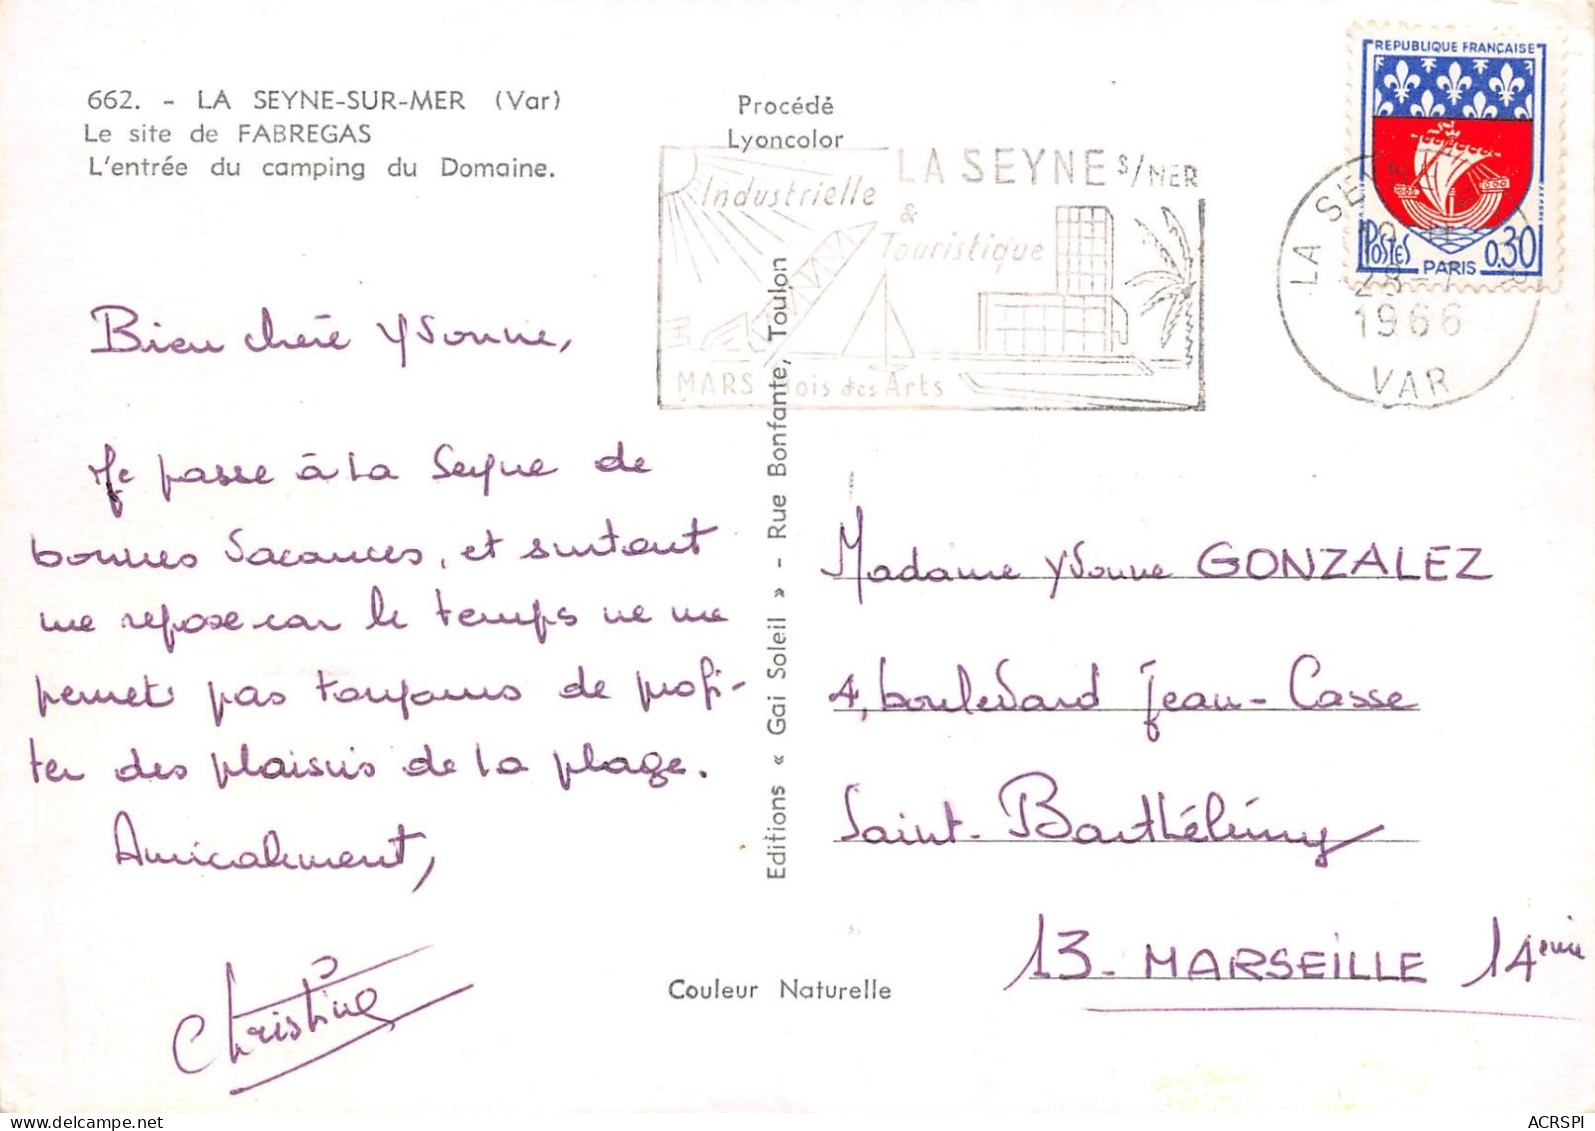 662. - LA SEYNE-SUR-MER (Var)
Le site de FABREGAS
L'entrée du camping du Domaine.
Procédé
Lyoncolor
LA SEYNE S/MER
Industrielle
&
Touristique
MARS Mois des Arts
REPUBLIQUE FRANÇAISE
POSTES
0.30
PARIS
LA SEYNE
28-7
1966
VAR
Bien chère Yvonne,
Je passe à la Seyne de
bonnes vacances, et surtout
me repose car le temps ne me
permet pas toujours de profi-
ter des plaisirs de la plage.
Amicalement,
Christine
Editions « Gai Soleil » - Rue Bonfante, Toulon
Couleur Naturelle
Madame Yvonne GONZALEZ
4, boulevard Jean-Casse
Saint-Barthélémy
13-MARSEILLE 14eme
ACRSPI